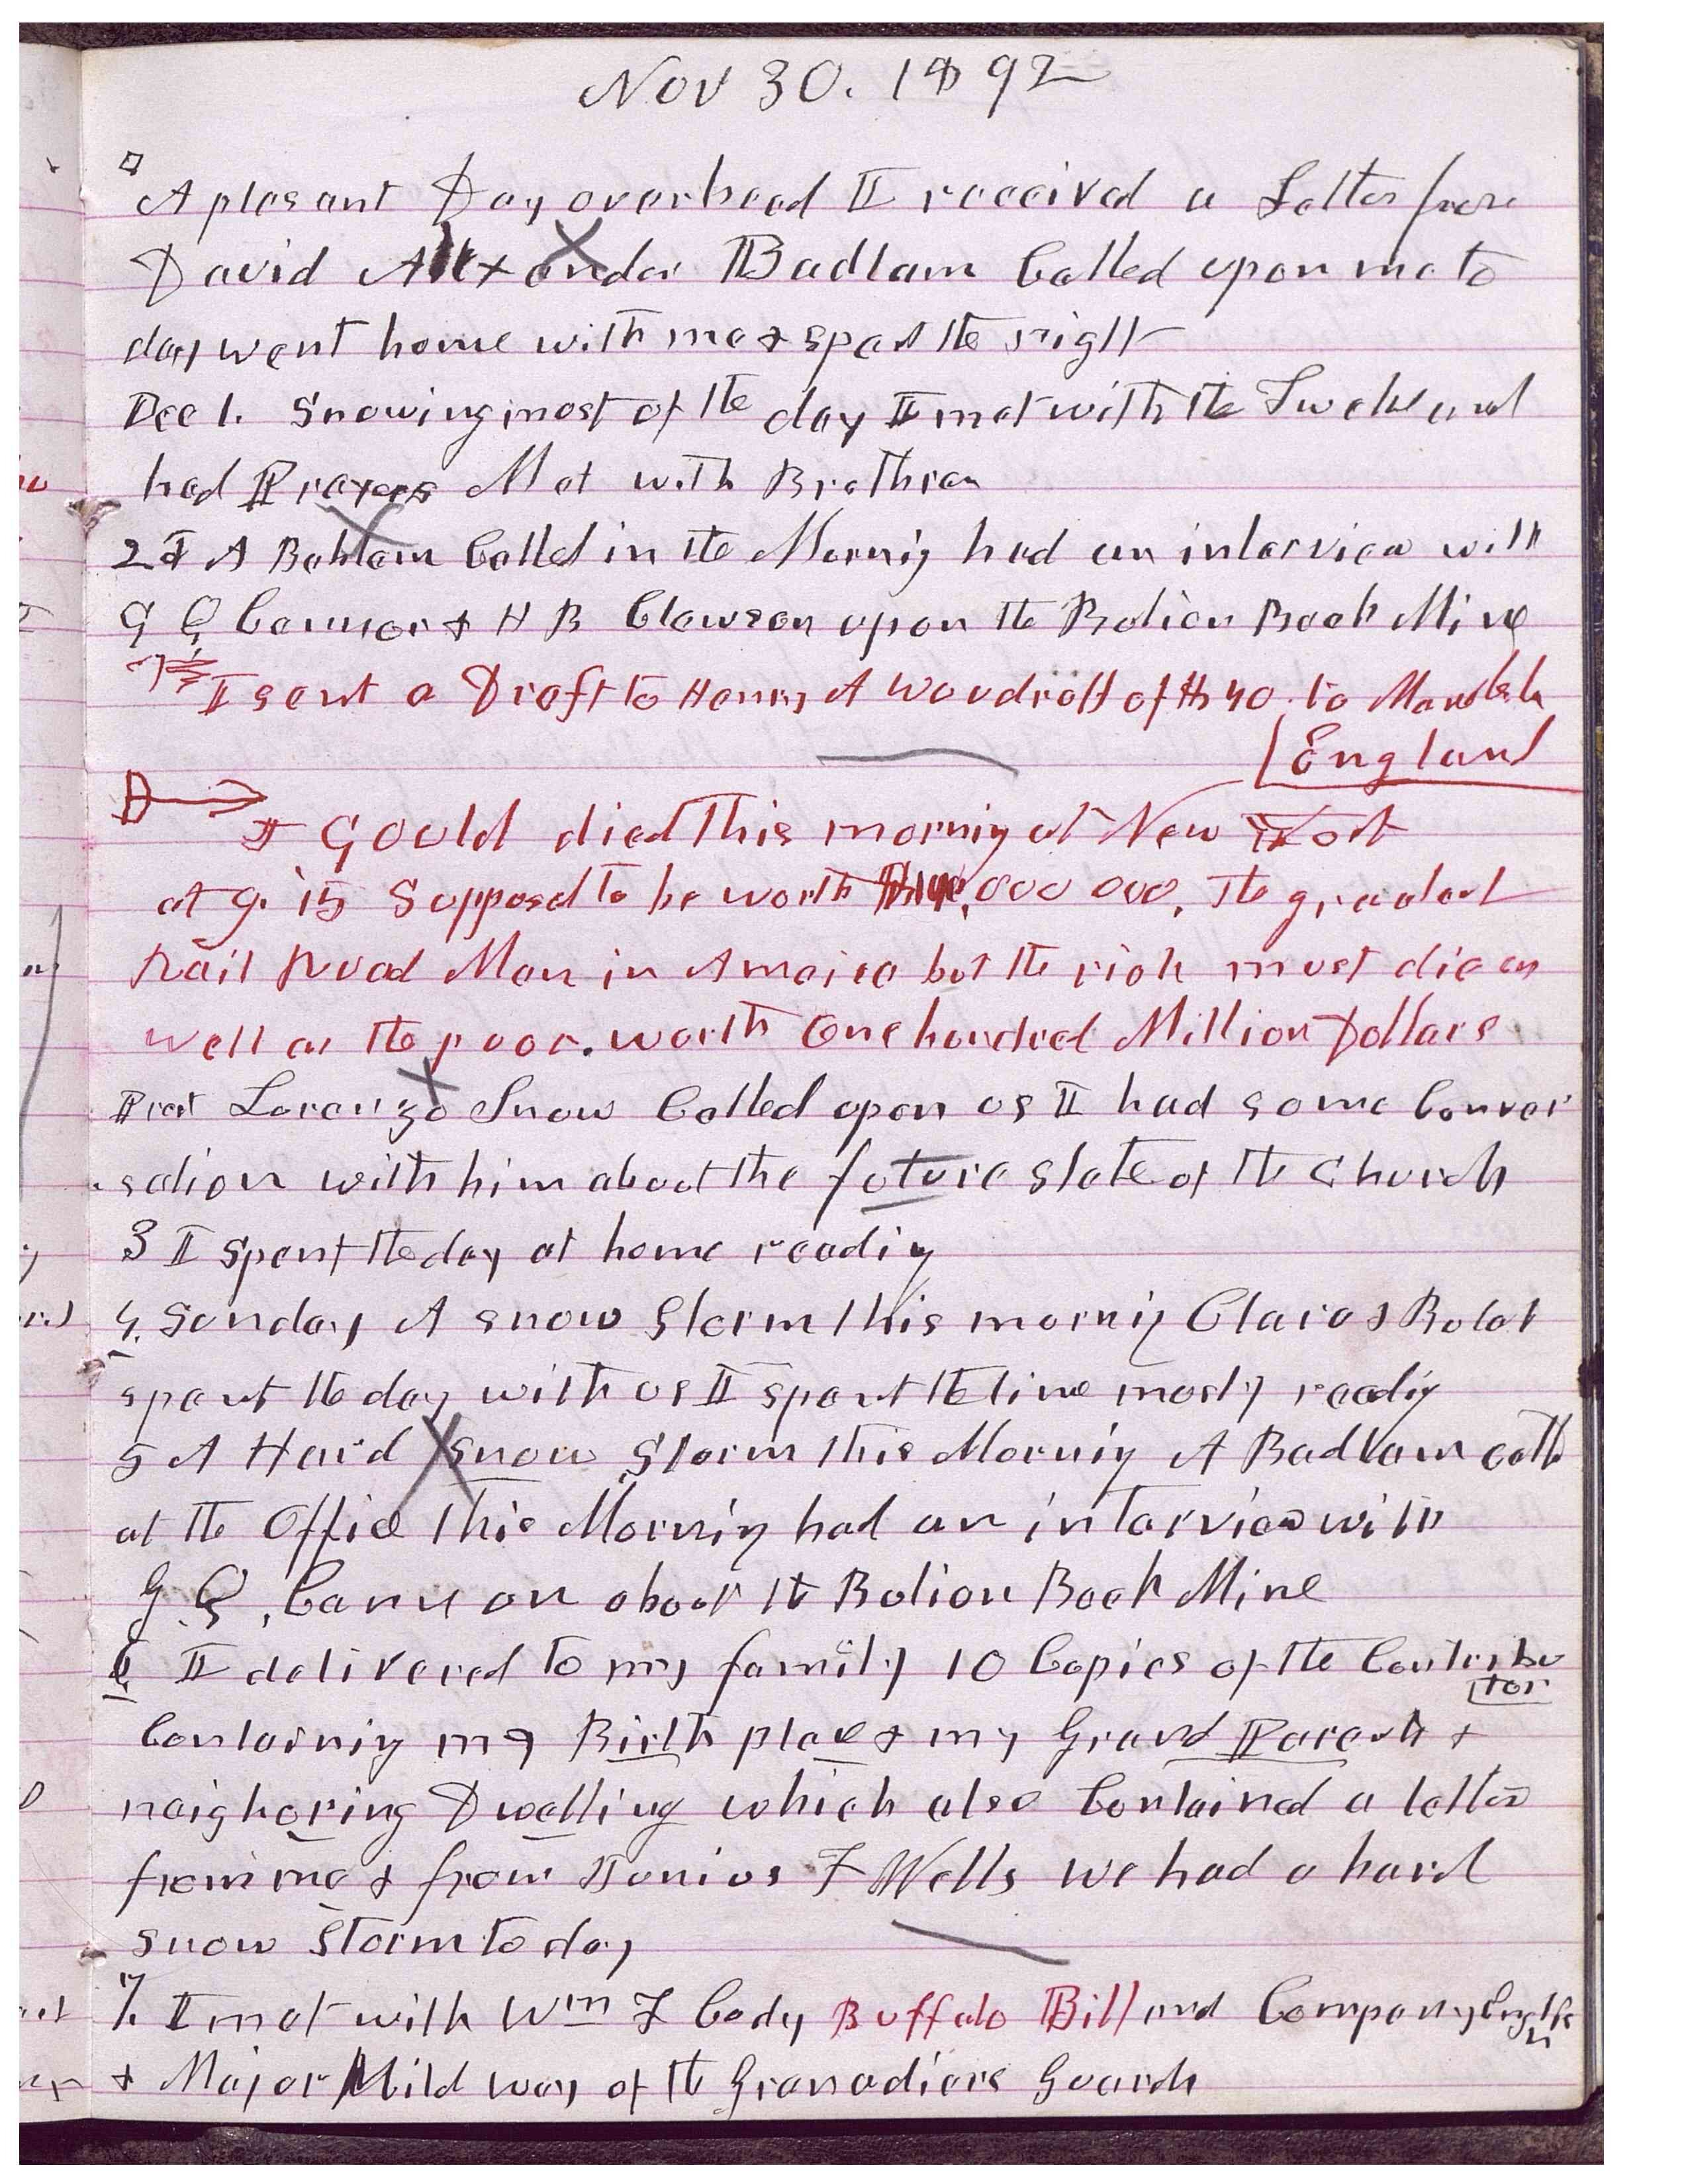 Nov 30. 1892
A plesant Day overhead I received a Letter from
David Alexander Badlam Called upon me to
day went home with me & spent the night
Dec 1. Snowing most of the day I met with the Twelve and
had Prayers Met with Brethren
2d A Badlam Called in the Morning had an interview with
G Q Cannon & H B Clawson upon the Bulion Beck Mine
I sent a Draft to Henry A Woodruff of $40 to
England
J Gould died This morning at New York
at 9. 15 Supposed to be worth 000 000. The greatest
Rail Road Man in America but the rich must die as
well as the poor. worth One hundred Million Dollars
Prest Lorenzo Snow Called upon us I had some Conver
sation with him about the future state of the Church
3 I spent the day at home reading
4. Sunday A snow Storm this morning Clara &
spent the day with us I spent the time mostly reading
5 A Hard Snow Storm this Morning A Badlam
at the Office this Morning had an interview with
G Q. Cannon about the Bulion Beck Mine
6 I delivered to my family 10 Copies of the Contribu
tor
Containing my Birth place & my Grand Parents &
neighoring Dwelling which also Contained a letter
from me & from Junius F Wells we had a hard
snow Storm to day
7. I met with Wm F Cody Buffalo Bill and Company
& Major Mildway of the Granadiers Guards